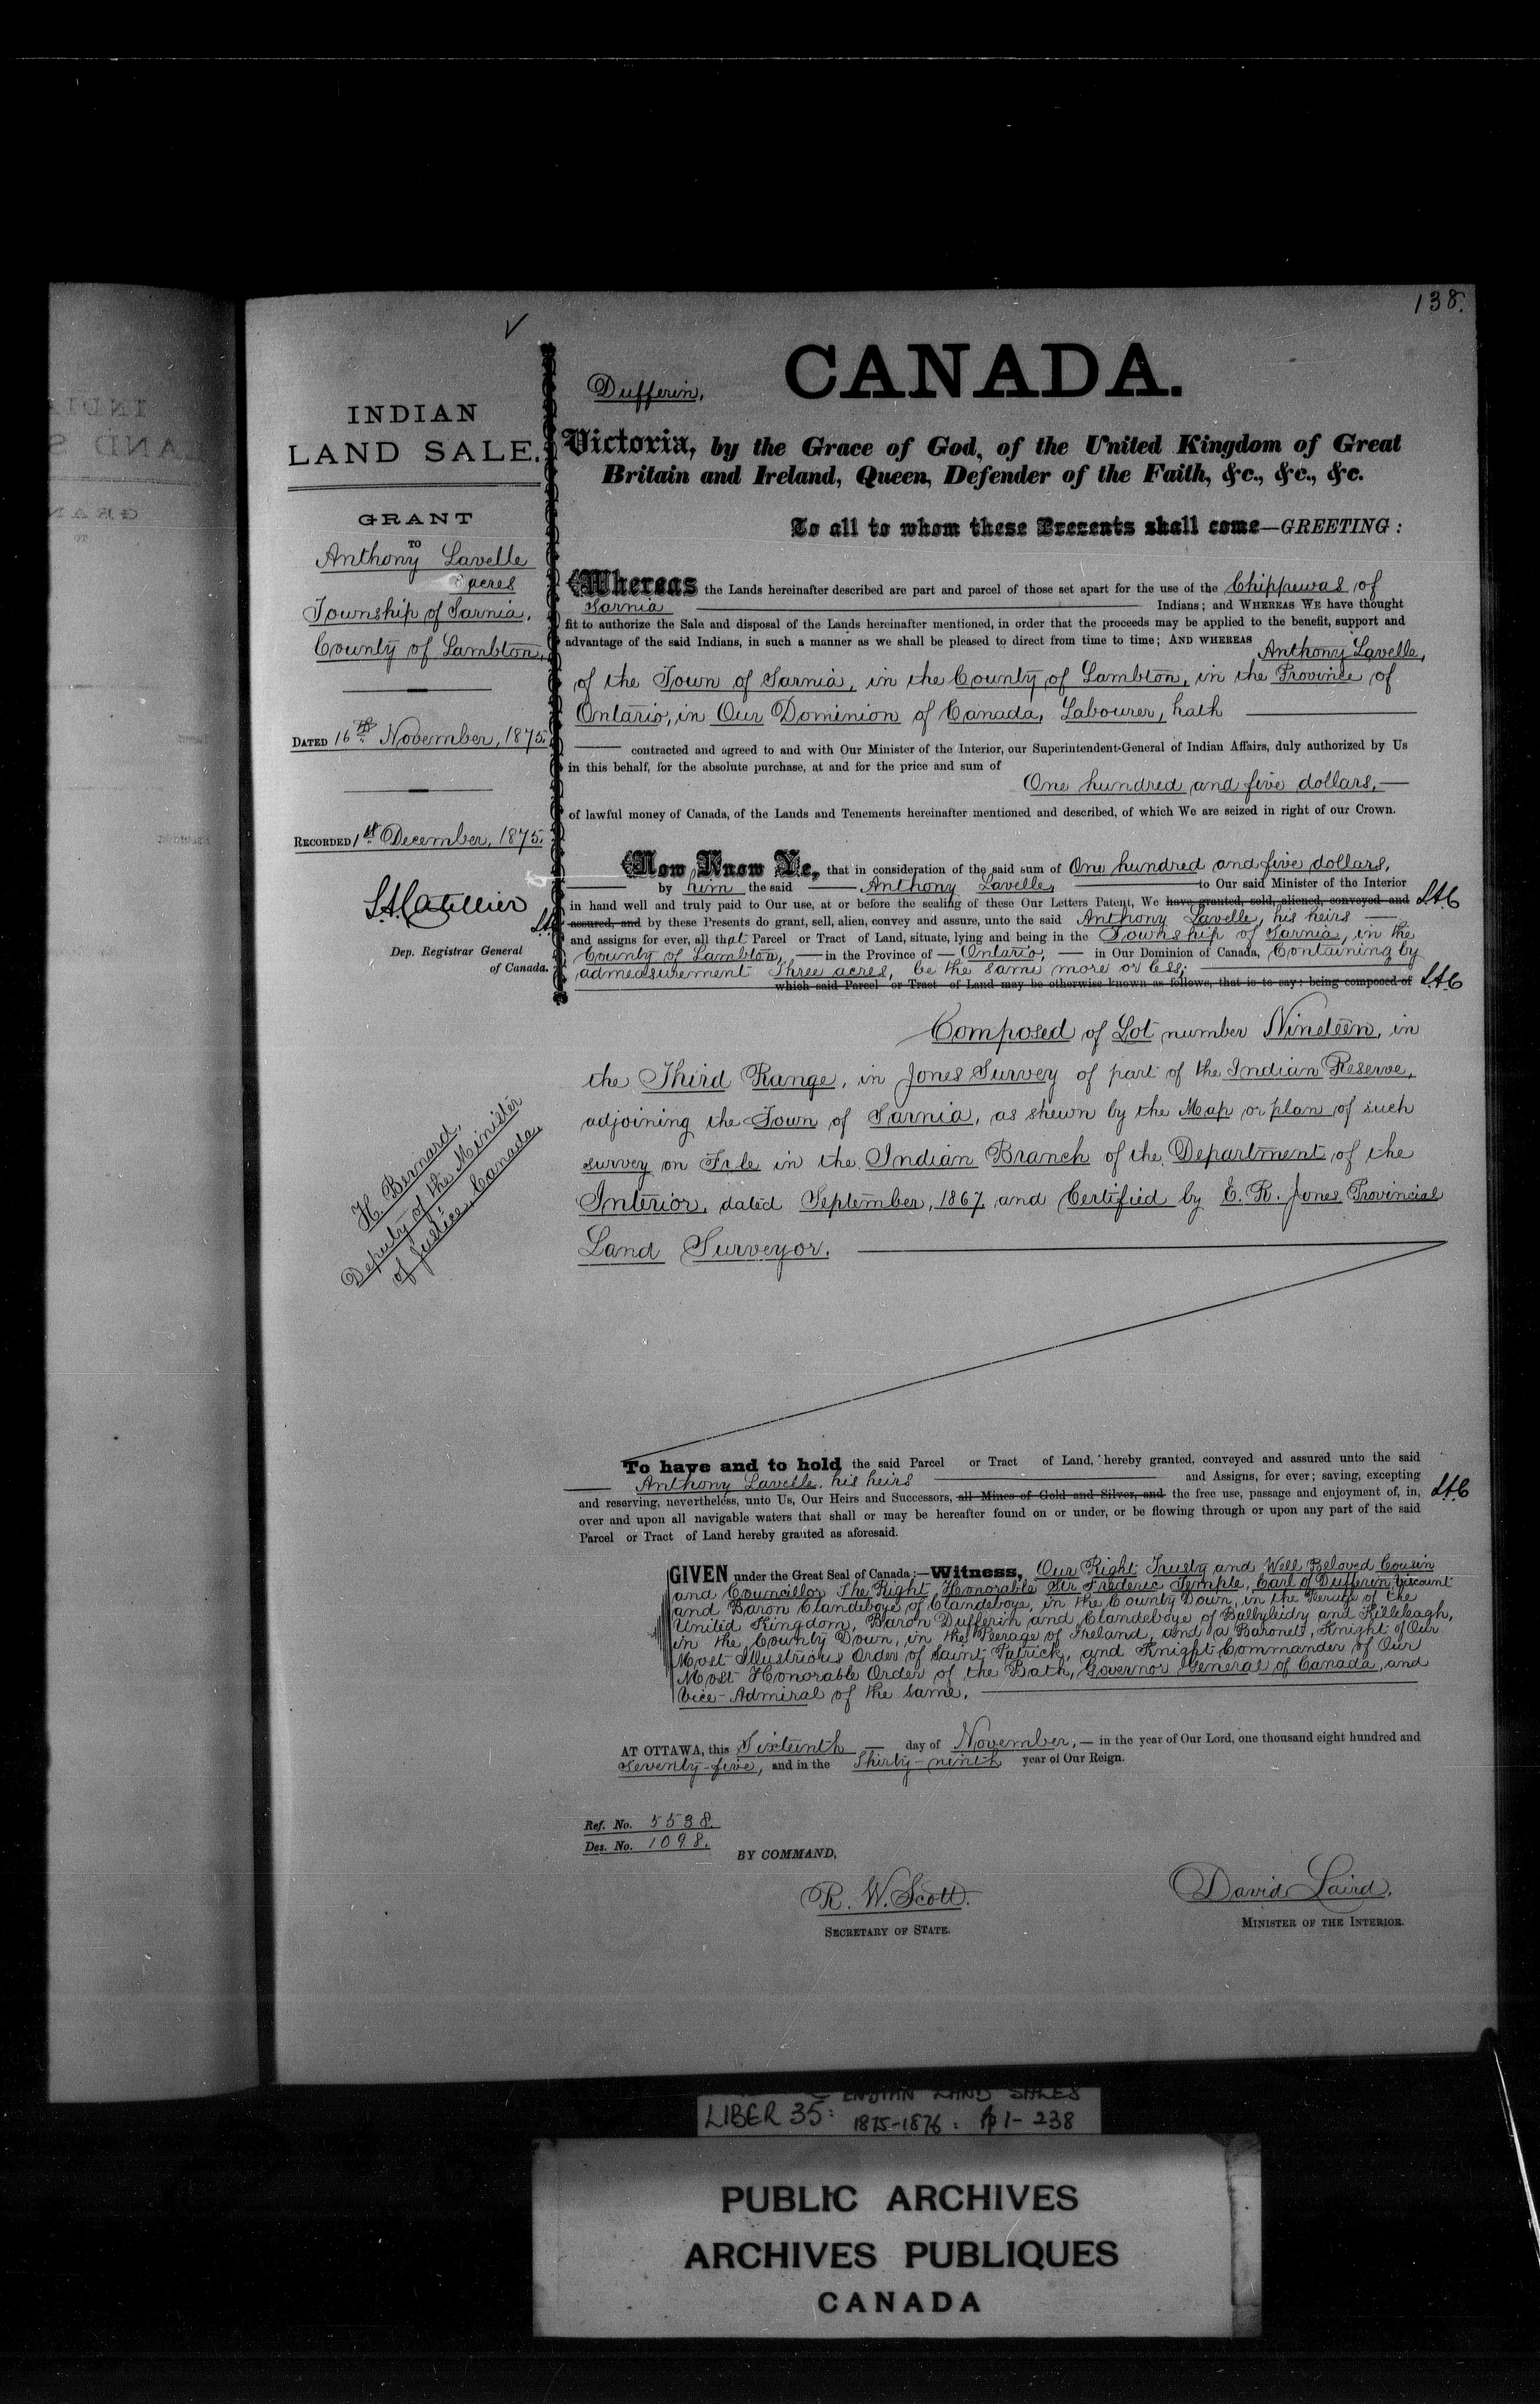 138.
CANADA.
Dufferin,
INDIAN
LAND SALE.
GRANT
TO
Anthony Lavelle
3 acres
Township of Sarnia,
County of Lambton,
DATED 16th November, 1875.
RECORDED 1st December, 1875.
Dep. Registrar General
of Canada.
H. Bernard,
Deputy of the Minister
of Justice, Canada.
Victoria, by the Grace of God, of the United Kingdom of Great
Britain and Ireland, Queen, Defender of the Faith, &c., &c., &c.
To all to whom these Presents shall come—GREETING:
Whereas the Lands hereinafter described are part and parcel of those set apart for the use of the Chippewas of
Sarnia Indians; and WHEREAS WE have thought
fit to authorize the Sale and disposal of the Lands hereinafter mentioned, in order that the proceeds may be applied to the benefit, support and
advantage of the said Indians, in such a manner as we shall be pleased to direct from time to time; AND WHEREAS Anthony Lavelle,
of the Town of Sarnia, in the County of Lambton, in the Province of
Ontario, in Our Dominion of Canada, Labourer, hath
contracted and agreed to and with Our Minister of the Interior, our Superintendent-General of Indian Affairs, duly authorized by Us
in this behalf, for the absolute purchase, at and for the price and sum of
One hundred and five dollars,
of lawful money of Canada, of the Lands and Tenements hereinafter mentioned and described, of which We are seized in right of our Crown.
Now Know Ye, that in consideration of the said sum of One hundred and five dollars,
by him the said Anthony Lavelle, to Our said Minister of the Interior
in hand well and truly paid to Our use, at or before the sealing of these Our Letters Patent, We have granted, sold, aliened, conveyed and
assured, and by these Presents do grant, sell, alien, convey and assure, unto the said Anthony Lavelle, his heirs
and assigns for ever, all that Parcel or Tract of Land, situate, lying and being in the Township of Sarnia, in the
County of Lambton, in the Province of Ontario, in Our Dominion of Canada, Containing by
admeasurement Three acres, be the same more or less;
which said Parcel or Tract of Land may be otherwise known as follows, that is to say: being composed of
Composed of Lot number Nineteen, in
the Third Range, in Jones Survey of part of the Indian Reserve,
adjoining the Town of Sarnia, as shewn by the Map or plan of such
survey on File in the Indian Branch of the Department of the
Interior, dated September, 1867, and Certified by E. R. Jones Provincial
Land Surveyor.
To have and to hold the said Parcel or Tract of Land, hereby granted, conveyed and assured unto the said
Anthony Lavelle, his heirs and Assigns, for ever; saving, excepting
and reserving, nevertheless, unto Us, Our Heirs and Successors, all Mines of Gold and Silver, and the free use, passage and enjoyment of, in,
over and upon all navigable waters that shall or may be hereafter found on or under, or be flowing through or upon any part of the said
Parcel or Tract of Land hereby granted as aforesaid.
GIVEN under the Great Seal of Canada:—Witness, Our Right Trusty and Well Beloved Cousin
and Councillor The Right Honorable Sir Frederic Temple, Earl of Dufferin, Viscount
and Baron Clandeboye of Clandeboye, in the County Down, in the Peerage of the
United Kingdom, Baron Dufferin and Clandeboye of Ballyleidy and Killeleagh,
in the County Down, in the Peerage of Ireland, and a Baronet, Knight of Our
Most Illustrious Order of Saint Patrick, and Knight Commander of Our
Most Honorable Order of the Bath, Governor General of Canada, and
Vice-Admiral of the same.
AT OTTAWA, this Sixteenth day of November, in the year of Our Lord, one thousand eight hundred and
seventy-five, and in the Thirty-ninth year of Our Reign.
Ref. No. 5538.
Des. No. 1098.
BY COMMAND,
R. W. Scott.
SECRETARY OF STATE.
David Laird,
MINISTER OF THE INTERIOR.
INDIAN LAND SALES
LIBER 35: 1875-1876: pp 1-238
PUBLIC ARCHIVES
ARCHIVES PUBLIQUES
CANADA